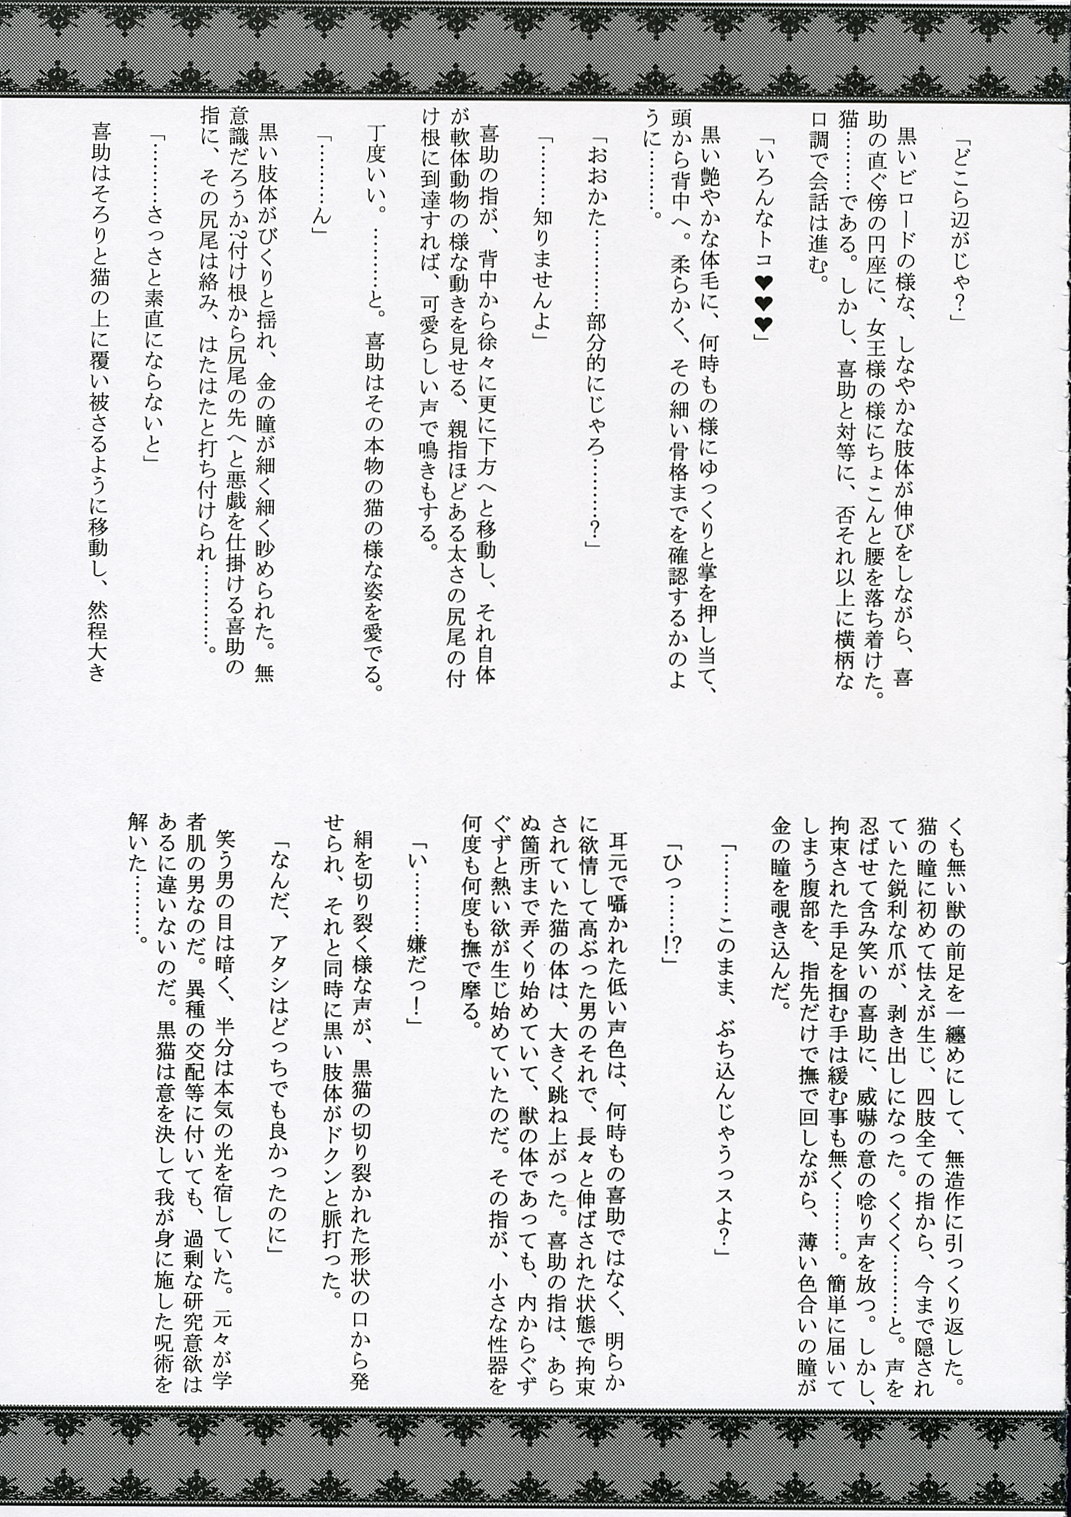 「どこら辺がじゃ？」
黒いビロードの様な、しなやかな肢体が伸びをしながら、喜
助の直ぐ傍の円座に、女王様の様にちょこんと腰を落ち着けた。
猫………である。しかし、喜助と対等に、否それ以上に横柄な
口調で会話は進む。
「いろんなトコ♥♥♥」
黒い艶やかな体毛に、何時もの様にゆっくりと掌を押し当て、
頭から背中へ。柔らかく、その細い骨格までを確認するかのよ
うに………。
「おおかた…………部分的にじゃろ………？」
「………知りませんよ」
喜助の指が、背中から徐々に更に下方へと移動し、それ自体
が軟体動物の様な動きを見せる、親指ほどある太さの尻尾の付
け根に到達すれば、可愛らしい声で鳴きもする。
丁度いい。………と。喜助はその本物の猫の様な姿を愛でる。
「………ん」
黒い肢体がびくりと揺れ、金の瞳が細く細く眇められた。無
意識だろうか?付け根から尻尾の先へと悪戯を仕掛ける喜助の
指に、その尻尾は絡み、はたはたと打ち付けられ…………。
「………さっさと素直にならないと」
喜助はそろりと猫の上に覆い被さるように移動し、然程大き
くも無い獣の前足を一纏めにして、無造作に引っくり返した。
猫の瞳に初めて怯えが生じ、四肢全ての指から、今まで隠され
ていた鋭利な爪が、剥き出しになった。くくく………と。声を
忍ばせて含み笑いの喜助に、威嚇の意の唸り声を放つ。しかし、
拘束された手足を掴む手は緩む事も無く………。簡単に届いて
しまう腹部を、指先だけで撫で回しながら、薄い色合いの瞳が
金の瞳を覗き込んだ。
「………このまま、ぶち込んじゃうっスよ？」
「ひっ……!?」
耳元で囁かれた低い声色は、何時もの喜助ではなく、明らか
に欲情して高ぶった男のそれで、長々と伸ばされた状態で拘束
されていた猫の体は、大きく跳ね上がった。喜助の指は、あら
ぬ箇所まで弄くり始めていて、獣の体であっても、内からぐず
ぐずと熱い欲が生じ始めていたのだ。その指が、小さな性器を
何度も何度も撫で摩る。
「い………嫌だっ！」
絹を切り裂く様な声が、黒猫の切り裂かれた形状の口から発
せられ、それと同時に黒い肢体がドクンと脈打った。
「なんだ、アタシはどっちでも良かったのに」
笑う男の目は暗く、半分は本気の光を宿していた。元々が学
者肌の男なのだ。異種の交配等に付いても、過剰な研究意欲は
あるに違いないのだ。黒猫は意を決して我が身に施した呪術を
解いた………。